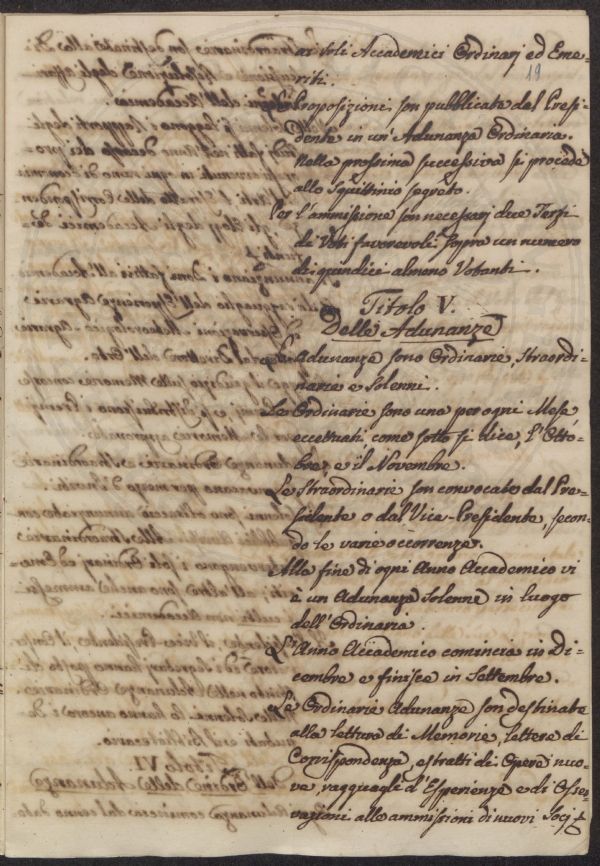 ar soli Accademici Ordinarj ed Eme-
riti.
19
Le Proposizioni son pubblicate dal Presi-
dente in un'Adunanza Ordinaria.
Nella prossima successiva si procede
allo Squittinio segreto.
Per l'ammissione son necessarj due Terzi
di Voti favorevoli sopra un numero
di quindici almeno Votanti.
Titolo V.
Delle Adunanze
Le Adunanze sono Ordinarie, Straordi-
narie e Solenni.
Le Ordinarie sono una per ogni Mese
eccettuati, come sotto si dice, l'Otto-
bre, e il Novembre.
Le Straordinarie son convocate dal Pre-
sidente o dal Vice-Presidente, secon-
do le varie occorrenze.
Alla fine di ogni Anno Accademico vi
è un Adunanza Solenne in luogo
dell'Ordinaria.
L'Anno Accademico comincia in Di-
cembre e finisce in Settembre.
Le Ordinarie Adunanze son destinate
alla lettura di Memorie, lettere di
Corrispondenza, estratti di Opere nuo-
ve, ragguagli d'Esperienze e di Osser-
vazioni alle ammissioni di nuovi Socj